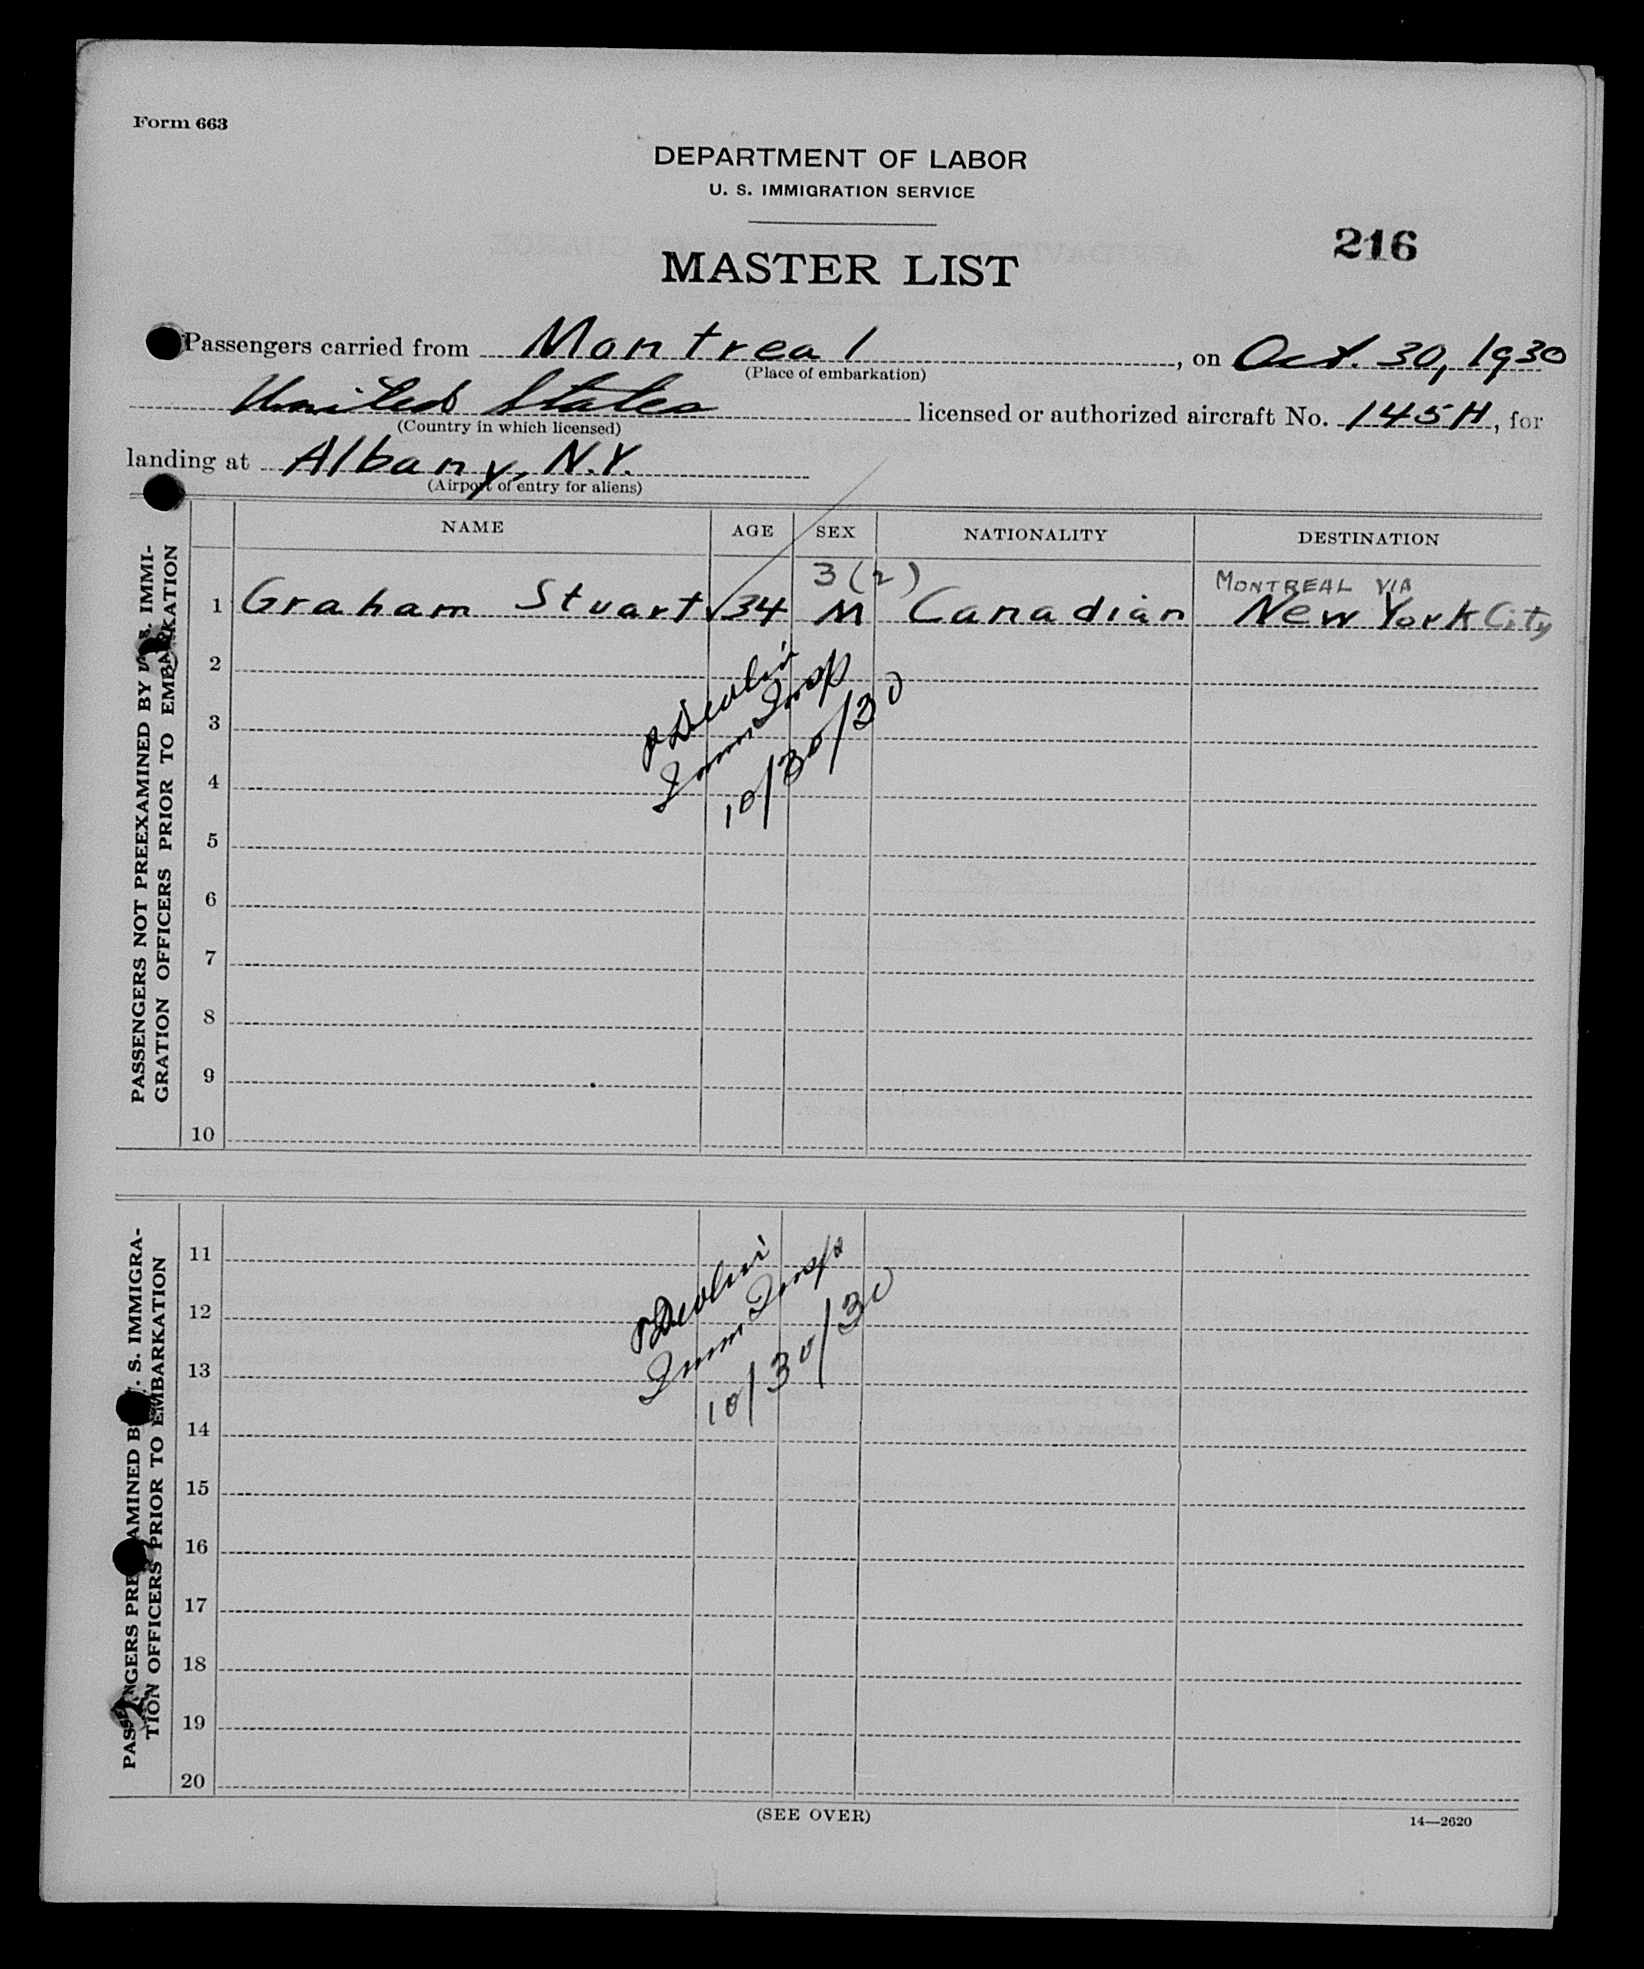 Form 663
DEPARTMENT OF LABOR
U. S. IMMIGRATION SERVICE
216
MASTER LIST
Passengers carried from Montreal, on Oct. 30, 1930
(Place of embarkation)
United States licensed or authorized aircraft No. 145H, for
(Country in which licensed)
landing at Albany, N.Y.
(Airport of entry for aliens)
PASSENGERS NOT PREEXAMINED BY U. S. IMMI-
GRATION OFFICERS PRIOR TO EMBARKATION
NAME AGE SEX NATIONALITY DESTINATION
3 (2) MONTREAL VIA
1 Graham Stuart 34 M Canadian New York City
2
3
4
5
6
7
8
9
10
Devlin
Imm Insp
10/30/30
PASSENGERS PREEXAMINED BY U. S. IMMIGRA-
TION OFFICERS PRIOR TO EMBARKATION
11
12
13
14
15
16
17
18
19
20
Devlin
Imm Insp
10/30/30
(SEE OVER)
14—2620